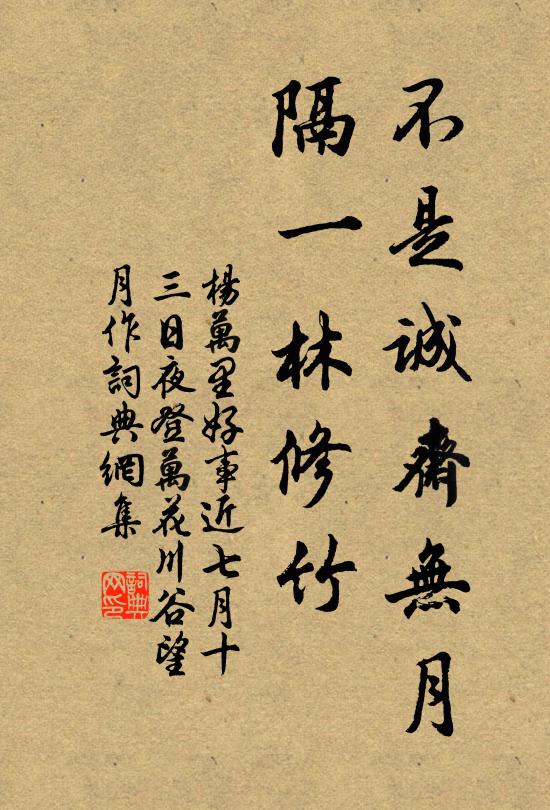 不是誠齋無月
隔一林修竹
楊萬里好事近七月十
三日夜登萬花川谷望
月作詞典網集
詞典
网印